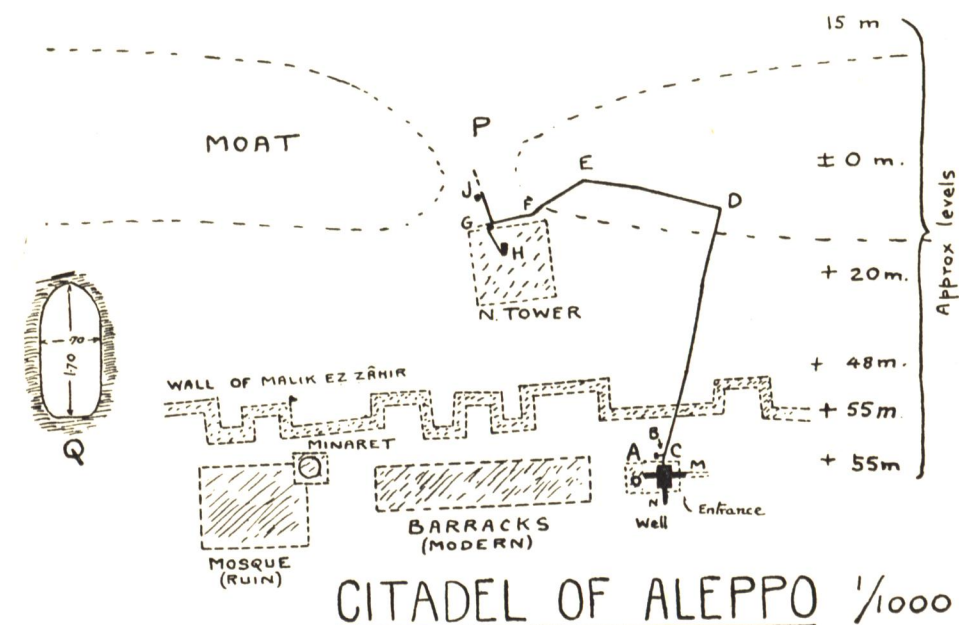 15 m
P
MOAT
E
± 0 m.
J
F
D
G
H
Approx levels
+ 20 m.
N. TOWER
.70
1.70
+ 48 m.
WALL OF MALIK EZ ZÂHIR
+ 55 m.
B
MINARET
Q
A
C
M
+ 55 m
O
N
Entrance
Well
BARRACKS
(MODERN)
MOSQUE
(RUIN)
CITADEL OF ALEPPO 1/1000